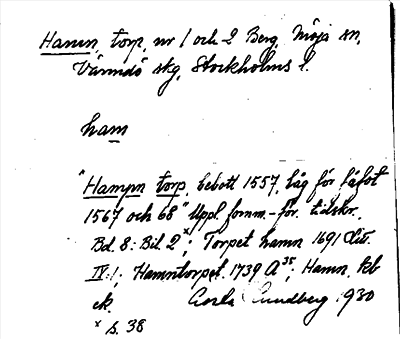 Hamn, torp, nr 1 och 2 Berg, Möja sn,
Värmdö skg, Stockholms l.
ham
"Hampn torp, bebott 1557, låg för fäfot
1567 och 68" Uppl. fornm.-för. tidskr.
Bd. 8: Bil. 2 x; Torpet hamn 1691 Lit.
IV:1; Hamntorpet 1739 A 35; Hamn, Kb
ek. Gösta Lundberg 1930
x s. 38